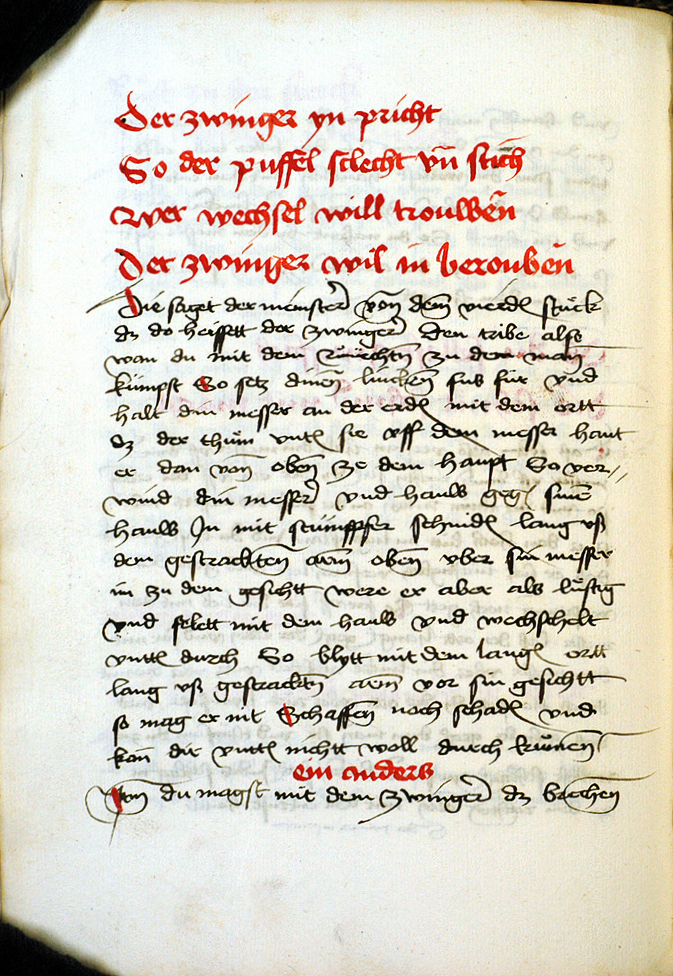 Der zwinger yn pricht
So der puffel schlecht vn̄ stich
Wer wechsel will trouwen̄
Der zwinger wil in berouben̄
Hie saget der meinster von dem vierdē stuck
dz do heissett der zwinger Den tribe also
wan du mit dem zu dem man
kümpst So setz dinen̄ lincken̄ fus für Vnd
halt din messer an der erdē mit dem ortt
dz der thum vntē sie vff dem messer haut
er dan von oben̄ ze dem haupt So ver//
wind din messer Vnd hauw gegē sinē
hauw In mit stumpffer schnidē lang vß
dem gestrackten̄ arm oben̄ vber sin messer
in zu dem gesichtt were er aber als lustig
vnd felett mit dem hauw Vnd wechschelt
vnttē durch So blytt mit dem langē ortt
lang vß gestracktn̄ arm vor sin gesichtt
so mag er nit Schaffen̄ noch schadē vnd
kan̄ dir vnttē nichtt woll durch kum̄en̄
ein anders
Itm̄ du magst mit dem zwinger dz brechen̄